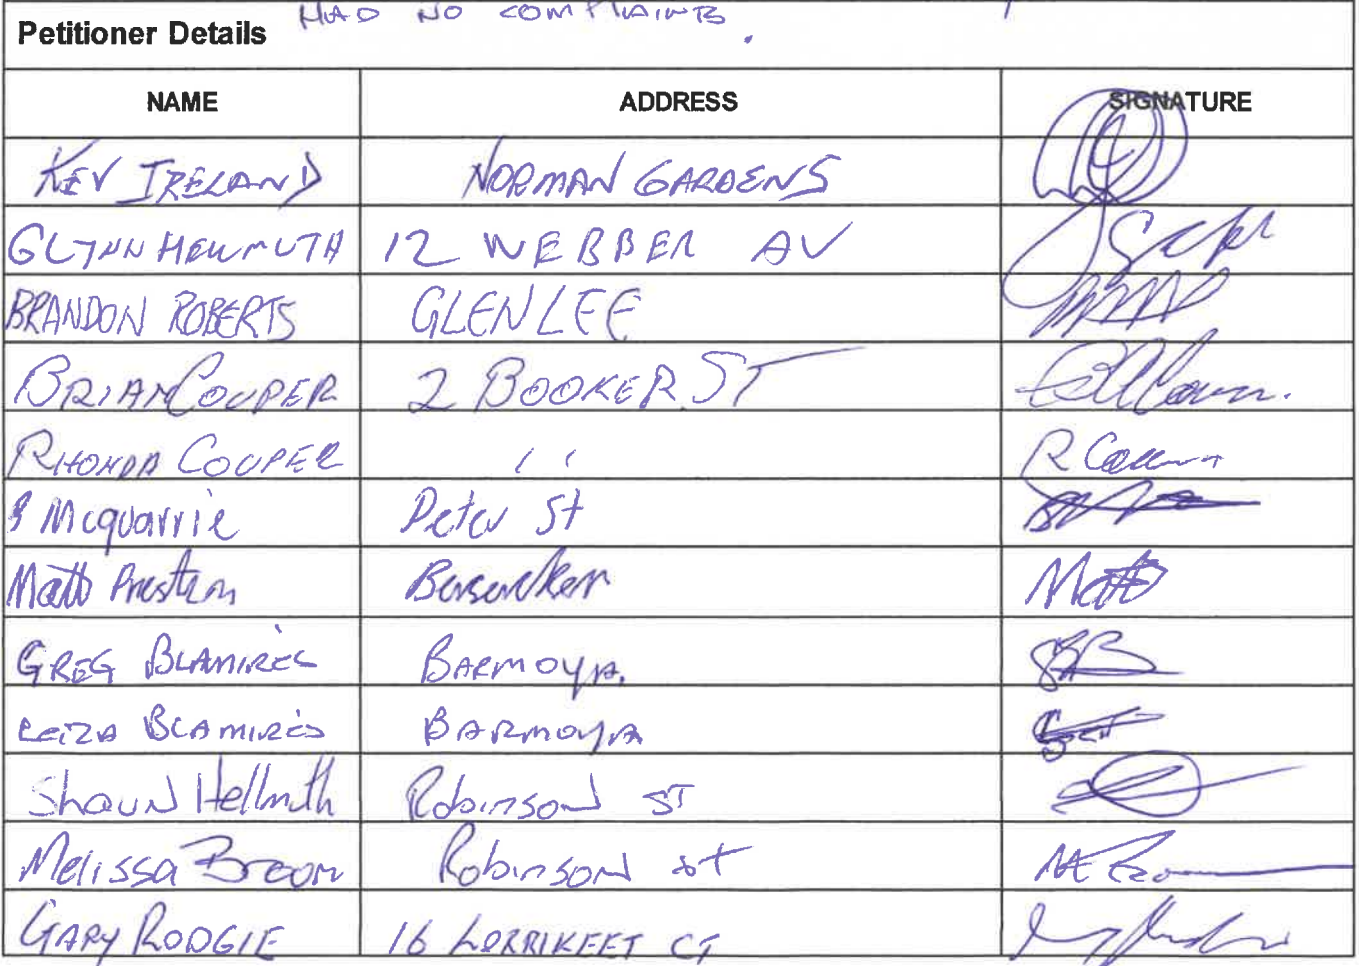 HAD NO COMPLAINTS.
Petitioner Details
NAME ADDRESS SIGNATURE
KEV IRELAND NORMAN GARDENS
GLYNN HELLMUTH 12 WEBBER AV
BRANDON ROBERTS GLENLEE
BRIAN COUPER 2 BOOKER ST
RHONDA COUPER " R Couper
Mcquarrie Peter St
Matt Preston Berserker Matt
GREG BLAMIRES BARMOYA.
LEIZA BLAMIRES BARMOYA
Shaun Hellmuth Robinson ST
Melissa Broom Robinson st
GARY RODGIE 16 LORRIKEET CT